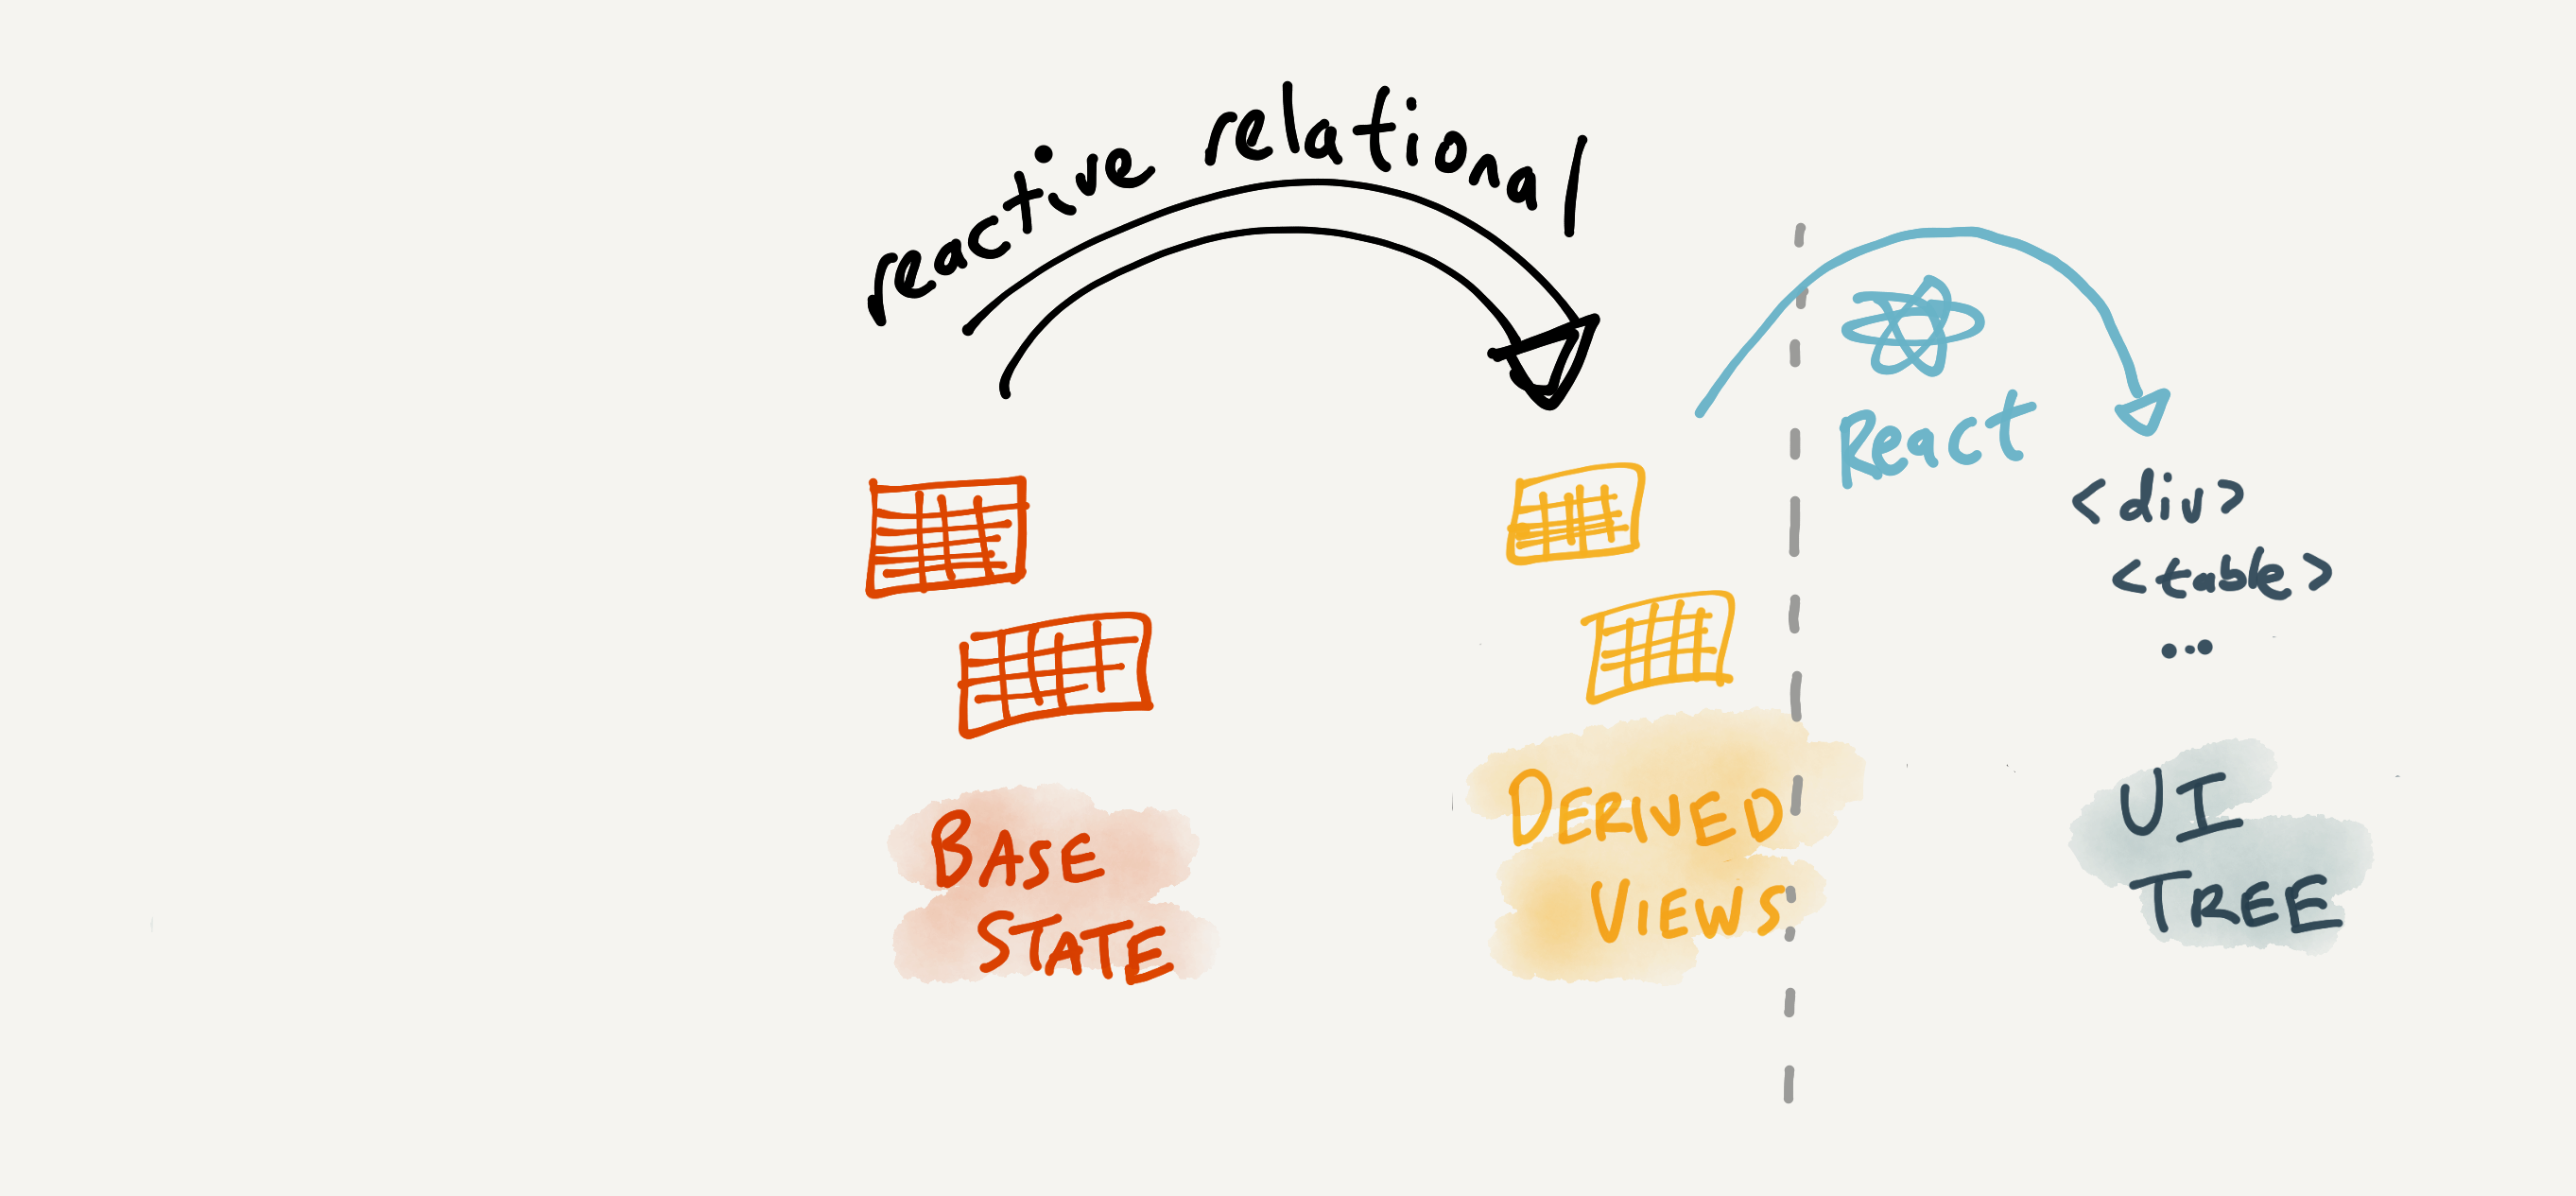 reactive relational
React
<div>
<table>
...
BASE
STATE
DERIVED
VIEWS
UI
TREE